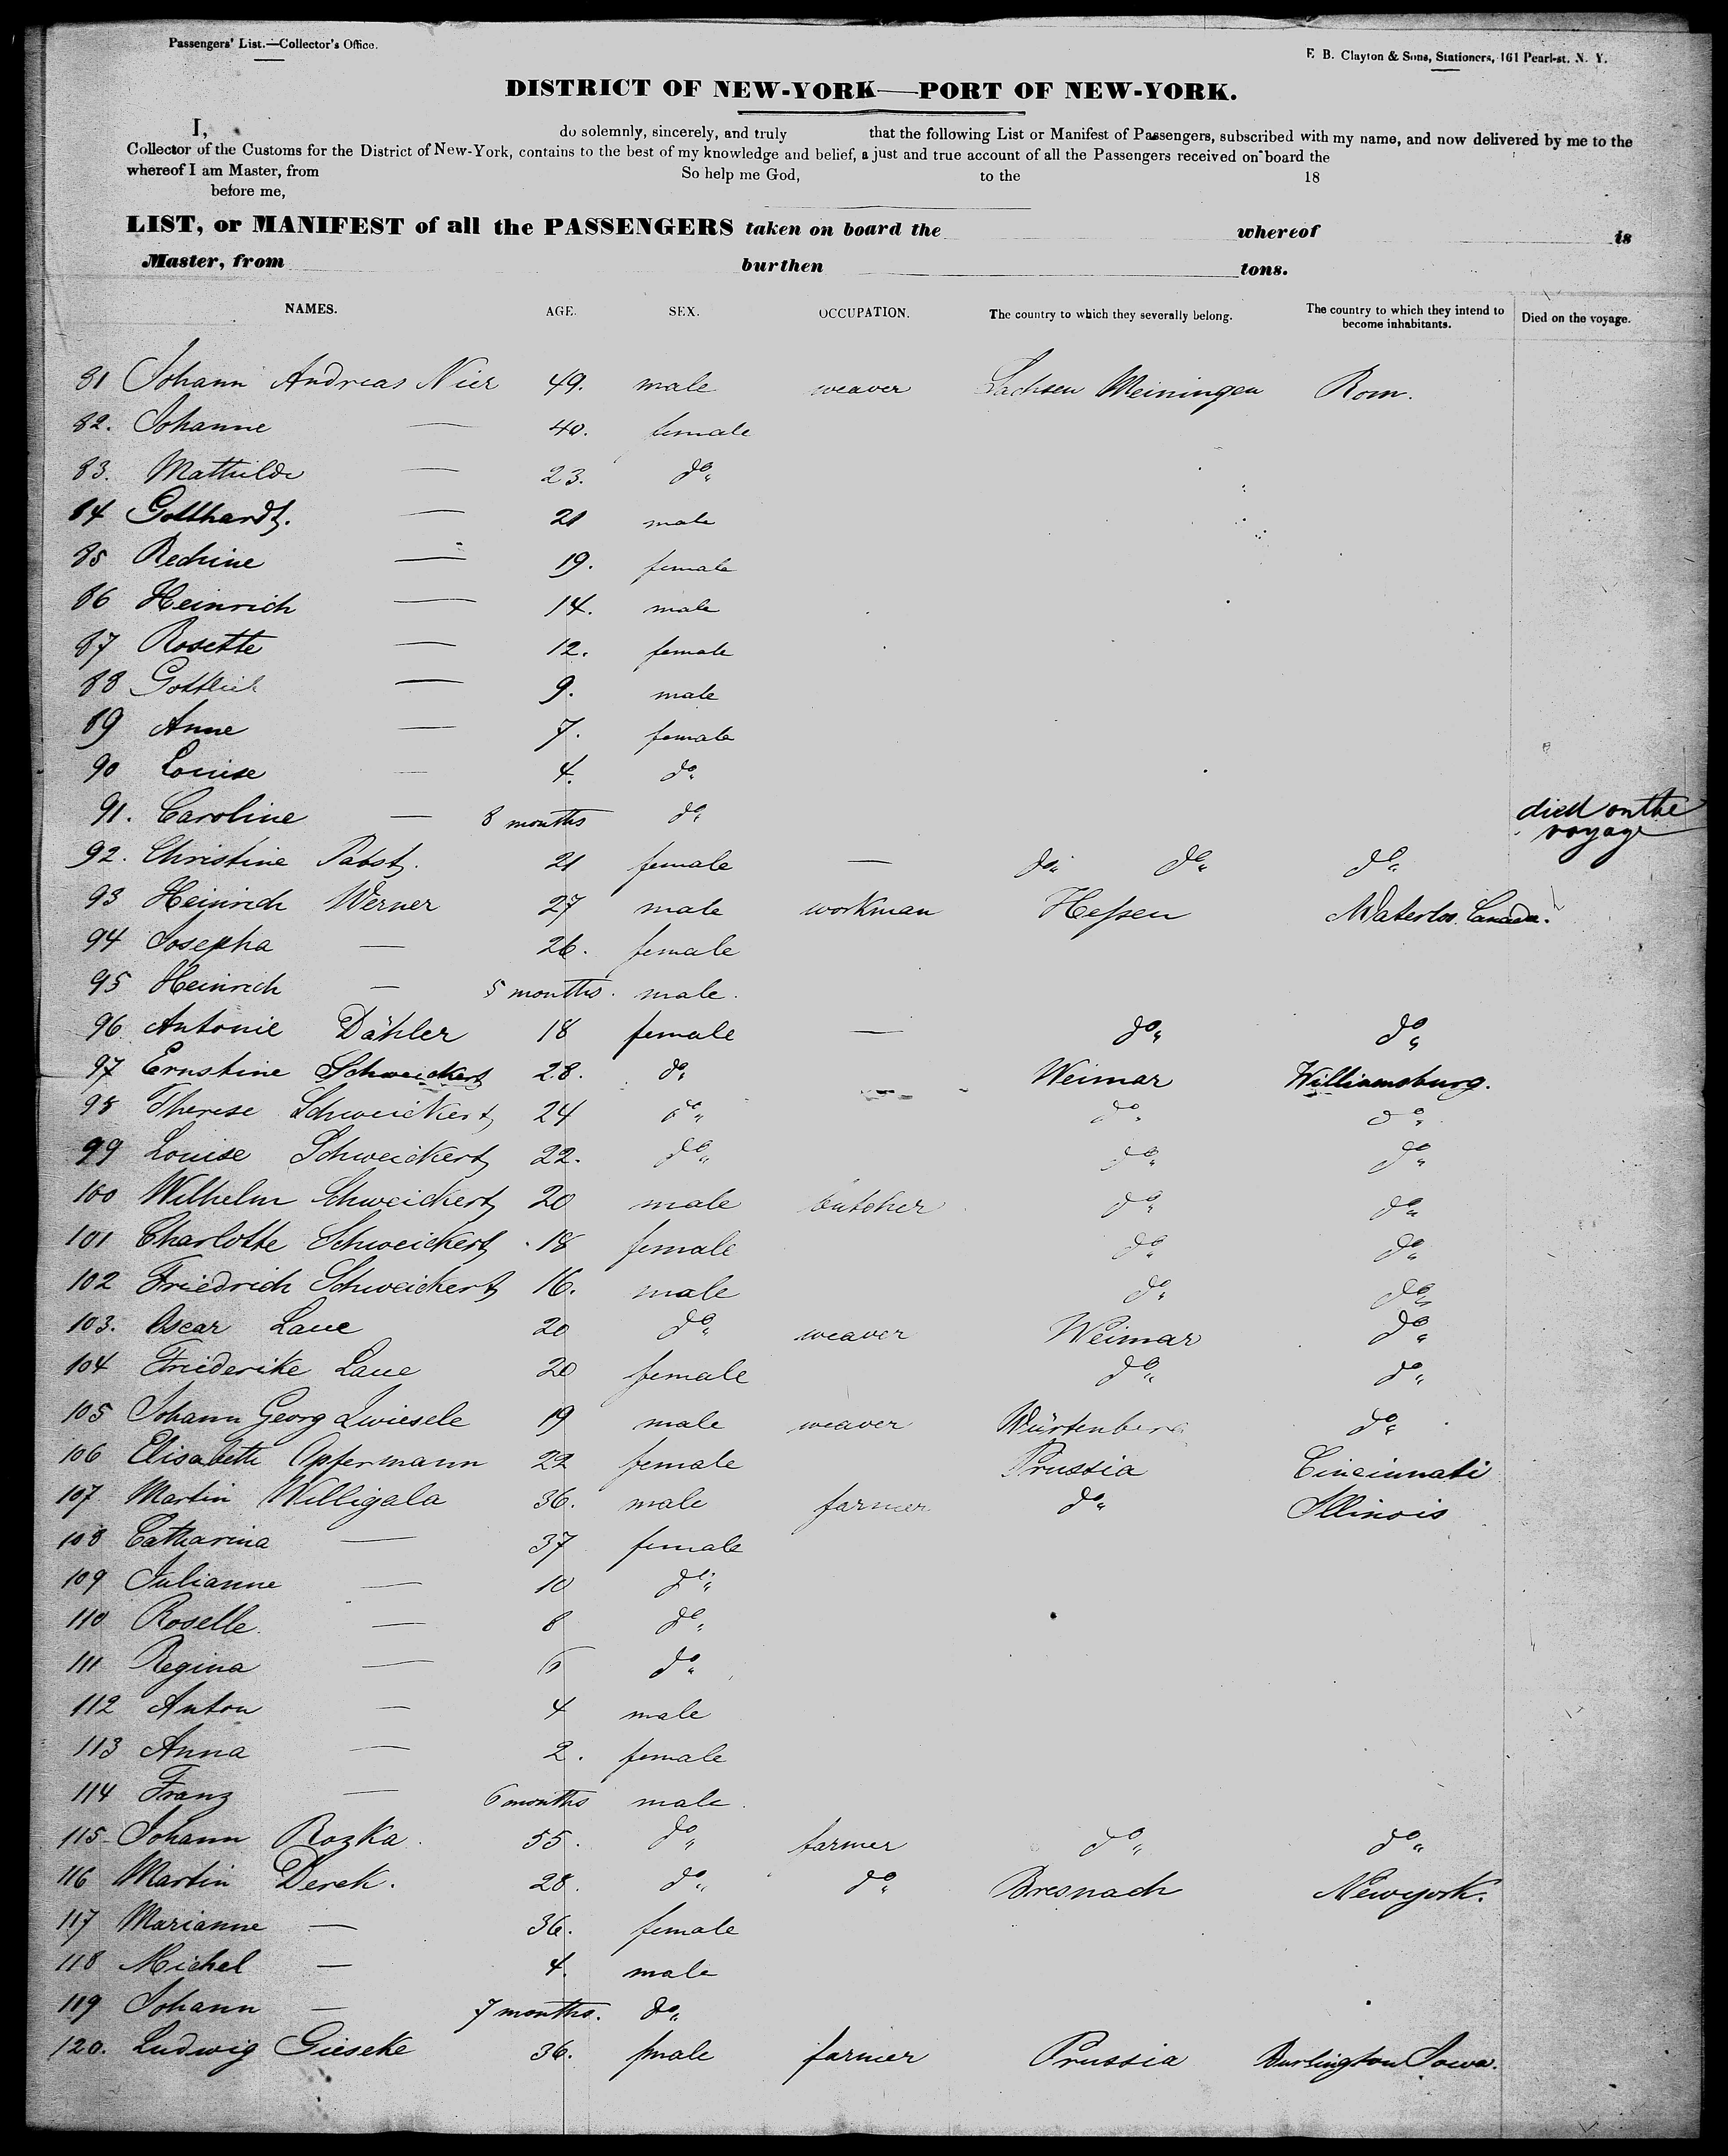 Passengers' List.—Collector's Office.
E. B. Clayton & Sons, Stationers, 161 Pearl-st. N. Y.
DISTRICT OF NEW-YORK—PORT OF NEW-YORK.
I, do solemnly, sincerely, and truly that the following List or Manifest of Passengers, subscribed with my name, and now delivered by me to the
Collector of the Customs for the District of New-York, contains to the best of my knowledge and belief, a just and true account of all the Passengers received on board the
whereof I am Master, from So help me God, to the 18
before me,
LIST, or MANIFEST of all the PASSENGERS taken on board the whereof is
Master, from burthen tons.
NAMES. AGE. SEX. OCCUPATION. The country to which they severally belong. The country to which they intend to become inhabitants. Died on the voyage.
81 Johann Andreas Nier 49. male weaver Sachsen Meiningen Rom.
82. Johanne — 40. female
83. Mathilde — 23. do
84 Gotthardt. — 21 male
85 Rechine — 19. female
86 Heinrich — 14. male
87 Rosette — 12. female
88 Gottlieb — 9. male
89 Anne — 7. female
90 Louise — 4. do
91. Caroline — 8 months do died on the voyage
92. Christine Pabst. 21 female — do do do
93 Heinrich Werner 27 male workman Hessen Waterloo Canada.
94 Josepha — 26. female
95 Heinrich — 5 months. male.
96 Antonie Dähler 18 female — do do
97 Ernstine Schweickert 28. do Weimar Williamsburg.
98 Therese Schweickert 24 do do do
99 Louise Schweickert 22. do do do
100 Wilhelm Schweickert 20 male butcher do do
101 Charlotte Schweickert 18 female do do
102 Friedrich Schweickert 16. male do do
103. Oscar Laue 20 do weaver Weimar do
104 Friederike Laue 20 female do do
105 Johann Georg Zwiesele 19 male weaver Würtenberg do
106 Elisabeth Opfermann 22 female Prussia Cincinnati
107 Martin Willigala 36. male farmer do Illinois
108 Catharina — 37 female
109 Julianne — 10 do
110 Roselle. — 8 do
111 Regina — 6 do
112 Anton — 4 male
113 Anna — 2. female
114 Franz — 6 months male.
115 Johann Rozka. 55. do farmer do do
116 Martin Derek. 28. do do Bresnach Newyork.
117 Marianne — 36. female
118 Michel — 4. male
119 Johann — 7 months. do
120. Ludwig Gieseke 36. male farmer Prussia Burlington Iowa.